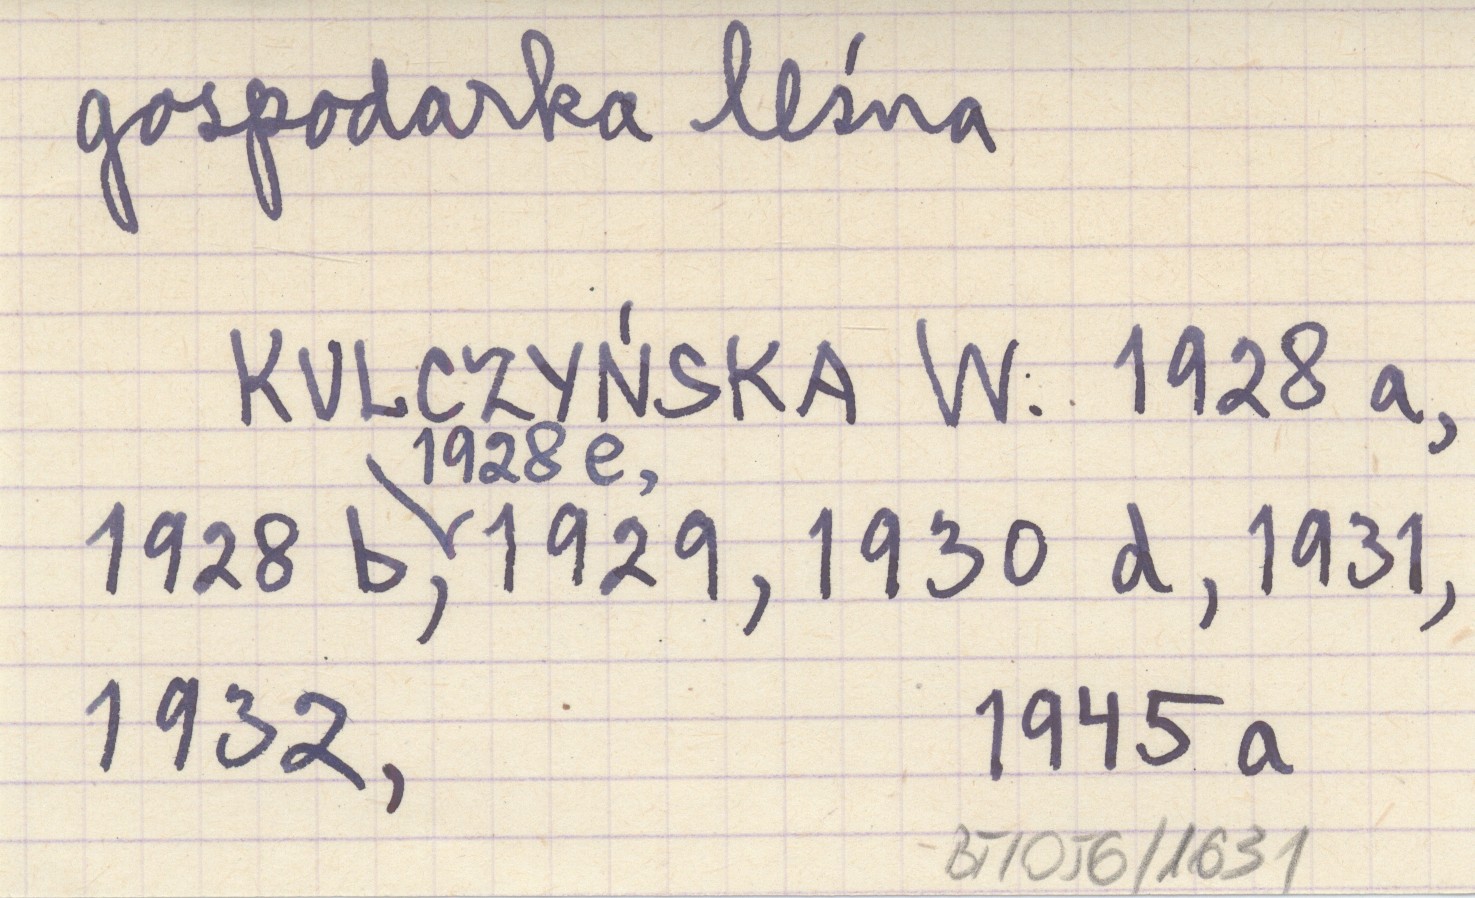 gospodarka leśna
KULCZYŃSKA W. 1928 a,
1928 e,
1928 b, 1929, 1930 d, 1931,
1932, 1945 a